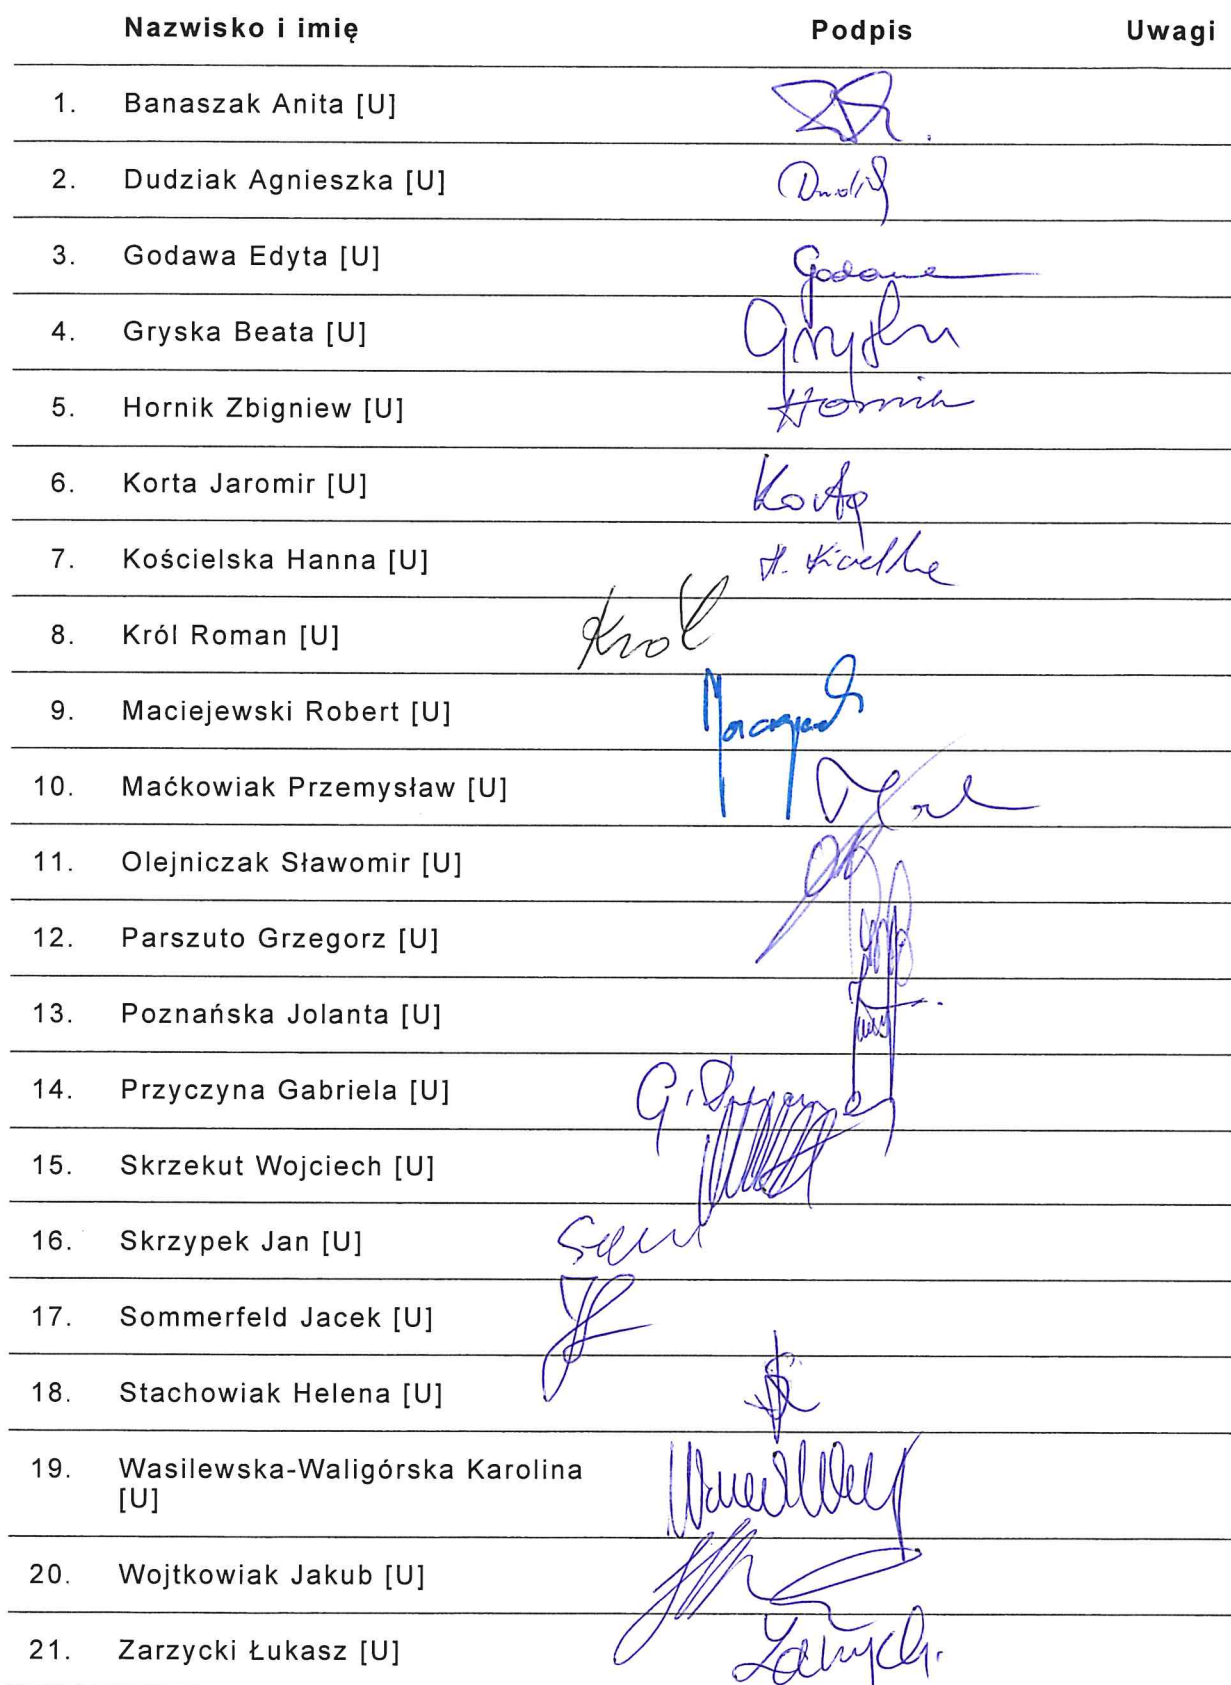 Nazwisko i imię Podpis Uwagi
1. Banaszak Anita [U]
2. Dudziak Agnieszka [U]
3. Godawa Edyta [U] Godawa
4. Gryska Beata [U]
5. Hornik Zbigniew [U] Hornik
6. Korta Jaromir [U] Korta
7. Kościelska Hanna [U] H.
8. Król Roman [U] Król
9. Maciejewski Robert [U]
10. Maćkowiak Przemysław [U]
11. Olejniczak Sławomir [U]
12. Parszuto Grzegorz [U]
13. Poznańska Jolanta [U]
14. Przyczyna Gabriela [U] G.
15. Skrzekut Wojciech [U]
16. Skrzypek Jan [U]
17. Sommerfeld Jacek [U]
18. Stachowiak Helena [U]
19. Wasilewska-Waligórska Karolina
[U]
20. Wojtkowiak Jakub [U]
21. Zarzycki Łukasz [U]